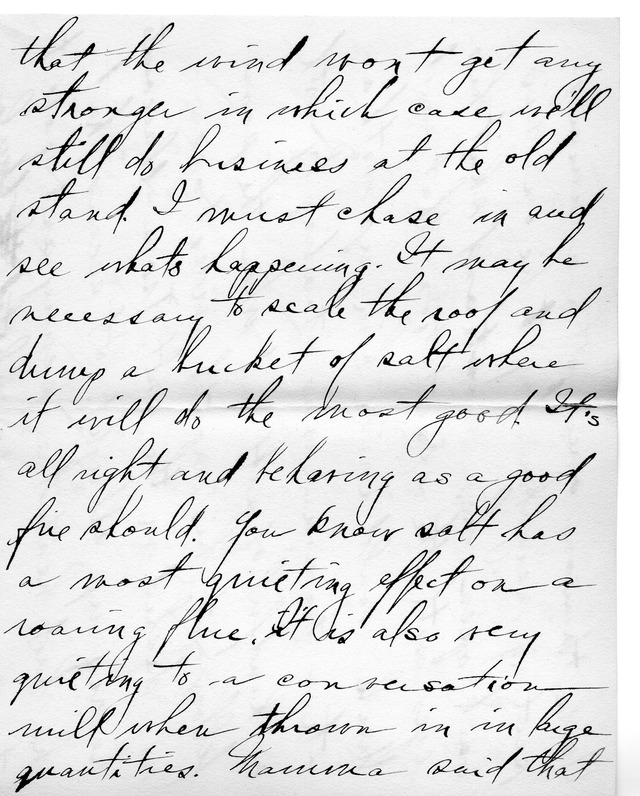 that the wind won't get any
stronger in which case we'll
still do business at the old
stand. I must chase in and
see whats happening. It may be
necessary to scale the roof and
dump a bucket of salt where
it will do the most good. It's
all right and behaving as a good
fire should. You know salt has
a most quieting effect on a
roaring flue. It is also very
quieting to a conversation
mill when thrown in in large
quantities. Mamma said that